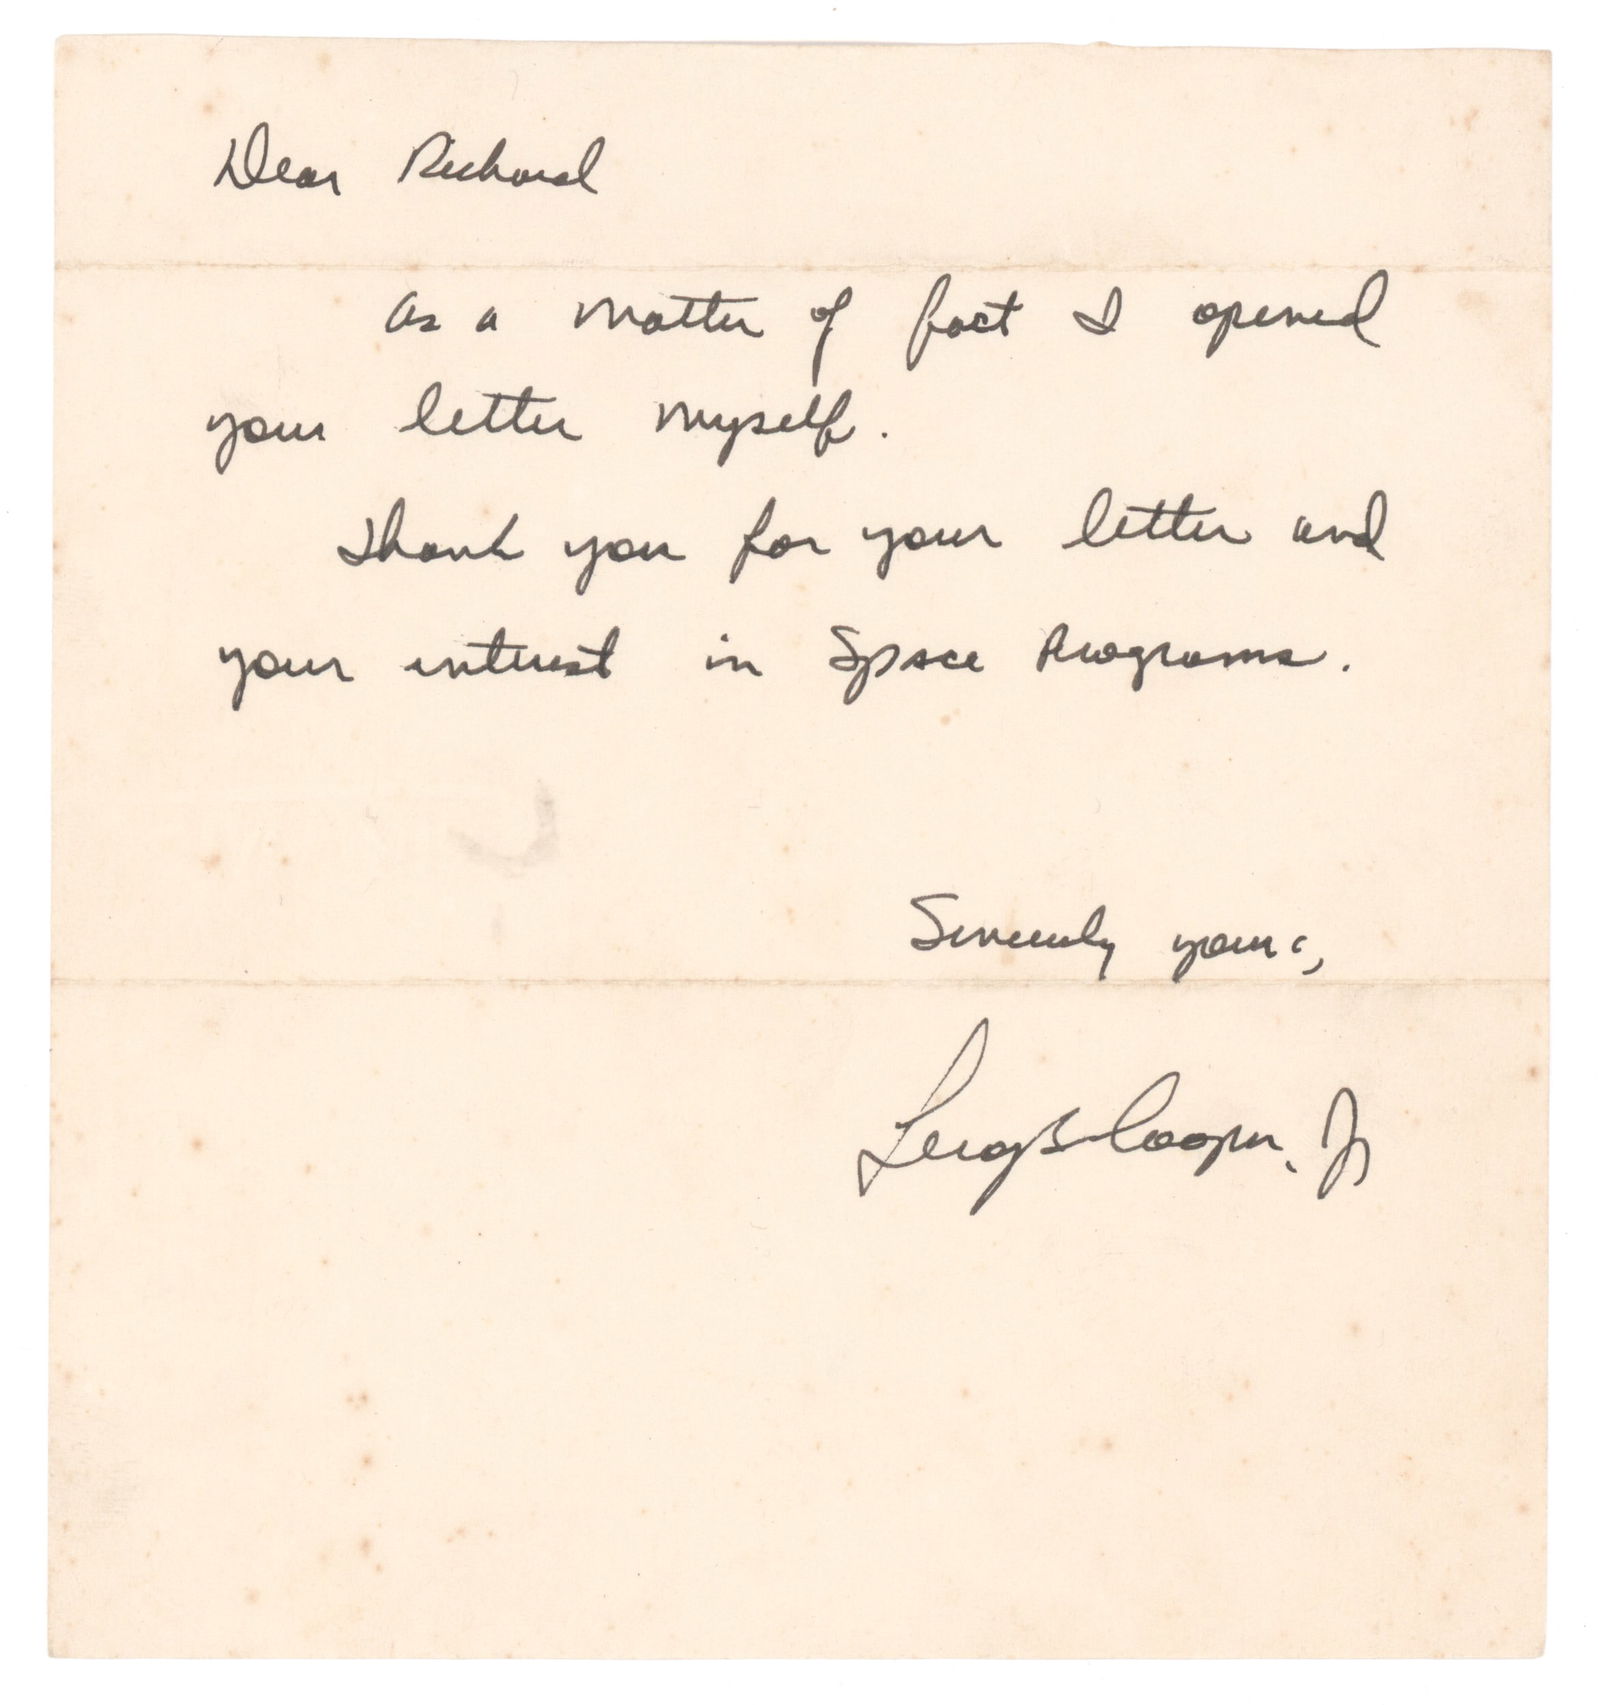 Dear Richard
As a matter of fact I opened
your letter myself.
Thank you for your letter and
your interest in Space Programs.
Sincerely yours,
Leroy G Cooper, Jr